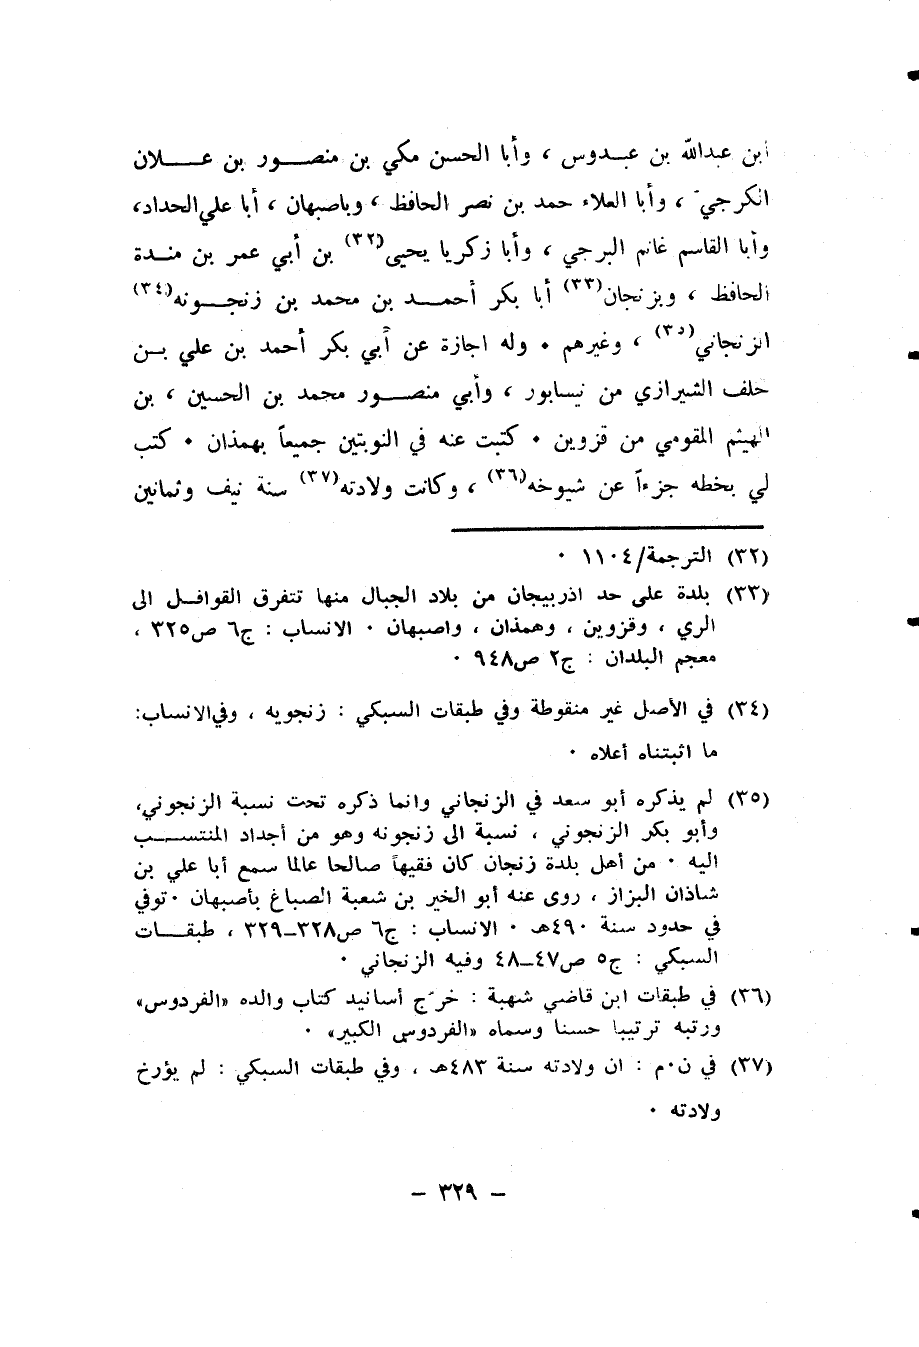 ابن عبدالله بن عبدوس ، وأبا الحسن مكي بن منصور بن علان
الكرجي ، وأبا العلاء حمد بن نصر الحافظ ، وباصبهان ، أبا علي الحداد،
وأبا القاسم غانم البرجي ، وأبا زكريا يحيى(٣٢) بن أبي عمر بن مندة
الحافظ ، وبزنجان(٣٣) أبا بكر أحمد بن محمد بن زنجونه(٣٤)
الزنجاني(٣٥) ، وغيرهم ٠ وله اجازة عن أبي بكر أحمد بن علي بن
خلف الشيرازي من نيسابور ، وأبي منصور محمد بن الحسين ، بن
الهيثم المقومي من قزوين ٠ كتبت عنه في النوبتين جميعاً بهمذان ٠ كتب
لي بخطه جزءاً عن شيوخه(٣٦) ، وكانت ولادته(٣٧) سنة نيف وثمانين
(٣٢) الترجمة/١١٠٤ ٠
(٣٣) بلدة على حد اذربيجان من بلاد الجبال منها تتفرق القوافل الى
الري ، وقزوين ، وهمذان ، واصبهان ٠ الانساب : ج٦ ص٣٢٥ ،
معجم البلدان : ج٢ ص٩٤٨ ٠
(٣٤) في الأصل غير منقوطة وفي طبقات السبكي : زنجويه ، وفي الانساب:
ما اثبتناه أعلاه ٠
(٣٥) لم يذكره أبو سعد في الزنجاني وانما ذكره تحت نسبة الزنجوني،
وأبو بكر الزنجوني ، نسبة الى زنجونه وهو من أجداد المنتسب
اليه ٠ من أهل بلدة زنجان كان فقيهاً صالحا عالما سمع أبا علي بن
شاذان البزاز ، روى عنه أبو الخير بن شعبة الصباغ بأصبهان ٠ توفي
في حدود سنة ٤٩٠هـ ٠ الانساب : ج٦ ص٣٢٨ــ٣٢٩ ، طبقات
السبكي : ج٥ ص٤٧ــ٤٨ وفيه الزنجاني ٠
(٣٦) في طبقات ابن قاضي شهبة : خرّج أسانيد كتاب والده «الفردوس»
ورتبه ترتيبا حسنا وسماه «الفردوس الكبير» ٠
(٣٧) في ن٠م : ان ولادته سنة ٤٨٣هـ ، وفي طبقات السبكي : لم يؤرخ
ولادته ٠
– ٣٢٩ –